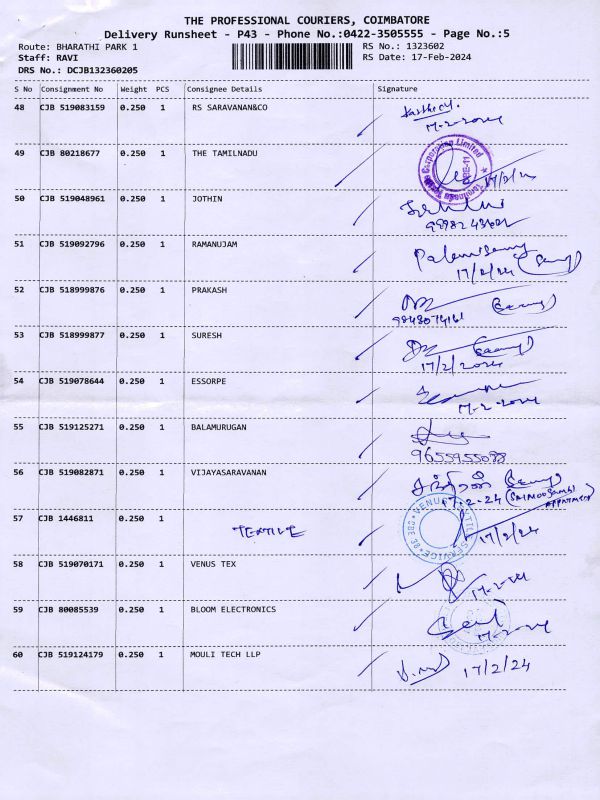 THE PROFESSIONAL COURIERS, COIMBATORE
Delivery Runsheet - P43 - Phone No.:0422-3505555 - Page No.:5
Route: BHARATHI PARK 1 RS No.: 1323602
Staff: RAVI RS Date: 17-Feb-2024
DRS No.: DCJB132360205
S No Consignment No Weight PCS Consignee Details Signature
48 CJB 519083159 0.250 1 RS SARAVANAN&CO
17-2-2024
49 CJB 80218677 0.250 1 THE TAMILNADU
Corporation Limited
17/2/24
50 CJB 519048961 0.250 1 JOTHIN
51 CJB 519092796 0.250 1 RAMANUJAM
17/2/24
52 CJB 518999876 0.250 1 PRAKASH
53 CJB 518999877 0.250 1 SURESH
17/2/2024
54 CJB 519078644 0.250 1 ESSORPE
17-2-2024
55 CJB 519125271 0.250 1 BALAMURUGAN
9655955088
56 CJB 519082871 0.250 1 VIJAYASARAVANAN
17-2-24
57 CJB 1446811 0.250 1 TEXTILE
VENUS TEXTILE SERVICE
17/2/24
58 CJB 519070171 0.250 1 VENUS TEX
17-2-24
59 CJB 80085539 0.250 1 BLOOM ELECTRONICS
17-2-24
60 CJB 519124179 0.250 1 MOULI TECH LLP
17/2/24